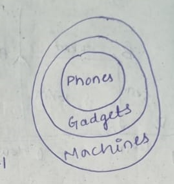 Phones
Gadgets
Machines